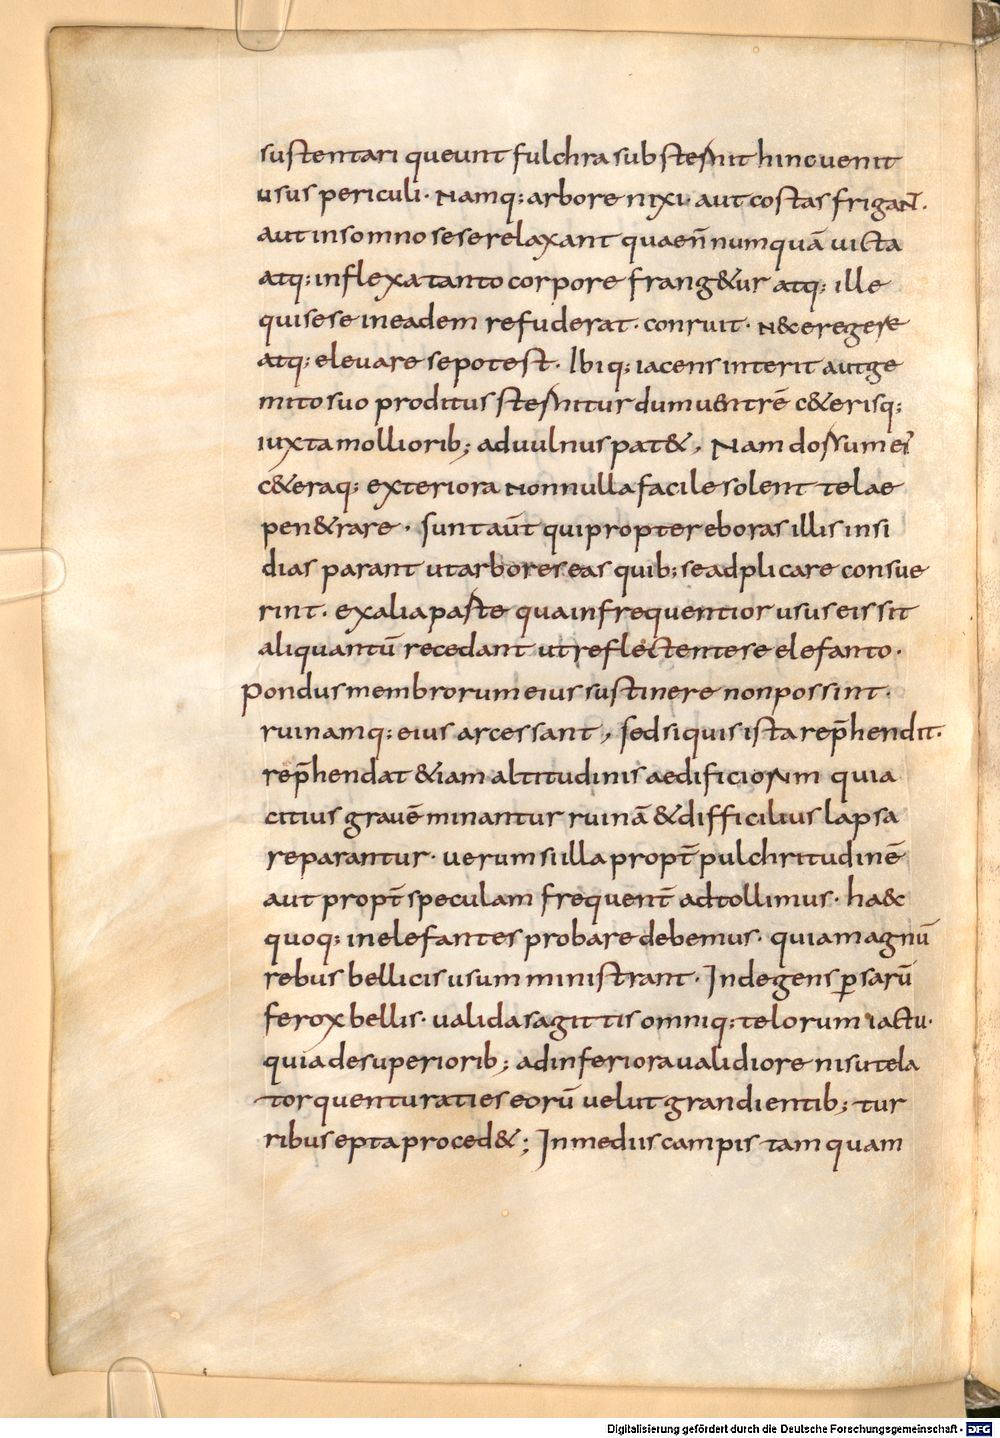 sustentari queunt fulchra substernit hinc uenit
usus periculi· Namq; arbore nixi· aut costas frigaNt̄.
aut in somno sese relaxant quae n̄ numquā uicta
atq; inflexa tanto corpore frang&ur atq; ille
qui sese in eadem refuderat· conruit· N&c eregere
atq; eleuare se potest· Ibiq; iacens interit aut ge
mito suo proditus sternitur dum uentrē c&erisq;
iuxta molliorib; ad uulnus pat&, Nam dossum ei
c&eraq; exteriora Non nulla facile solent telae
pen&rare· sunt aūt qui propter eboras illis insi
dias parant ut arbores eas quib; se adplicare consue
rint· ex alia parte qua infrequentior usus eis sit
aliquantū recedant ut reflectente se elefanto·
Pondus membrorum eius sustinere non possint·
ruinamq; eius arcessant, sed si quis ista rep̄hendit·
rep̄hendat &iam altitudinis aedificiorNm quia
citius grauē minantur ruinā & difficilius lapsa
reparantur· uerum si illa propt̄ pulchritudinē
aut propt̄ speculam frequent̄ adtollimus· ha&c
quoq; in elefantes probare debemus· quia magnū
rebus bellicis usum ministrant· Inde gens ꝑsarū
ferox bellis· ualida sagittis omniq; telorum iactu·
quia de superiorib; ad inferiora ualidiore nisu tela
torquentur aties eorū uelut grandientib; tur
ribus epta proced&; In mediis campis tamquam
Digitalisierung gefördert durch die Deutsche Forschungsgemeinschaft - DFG